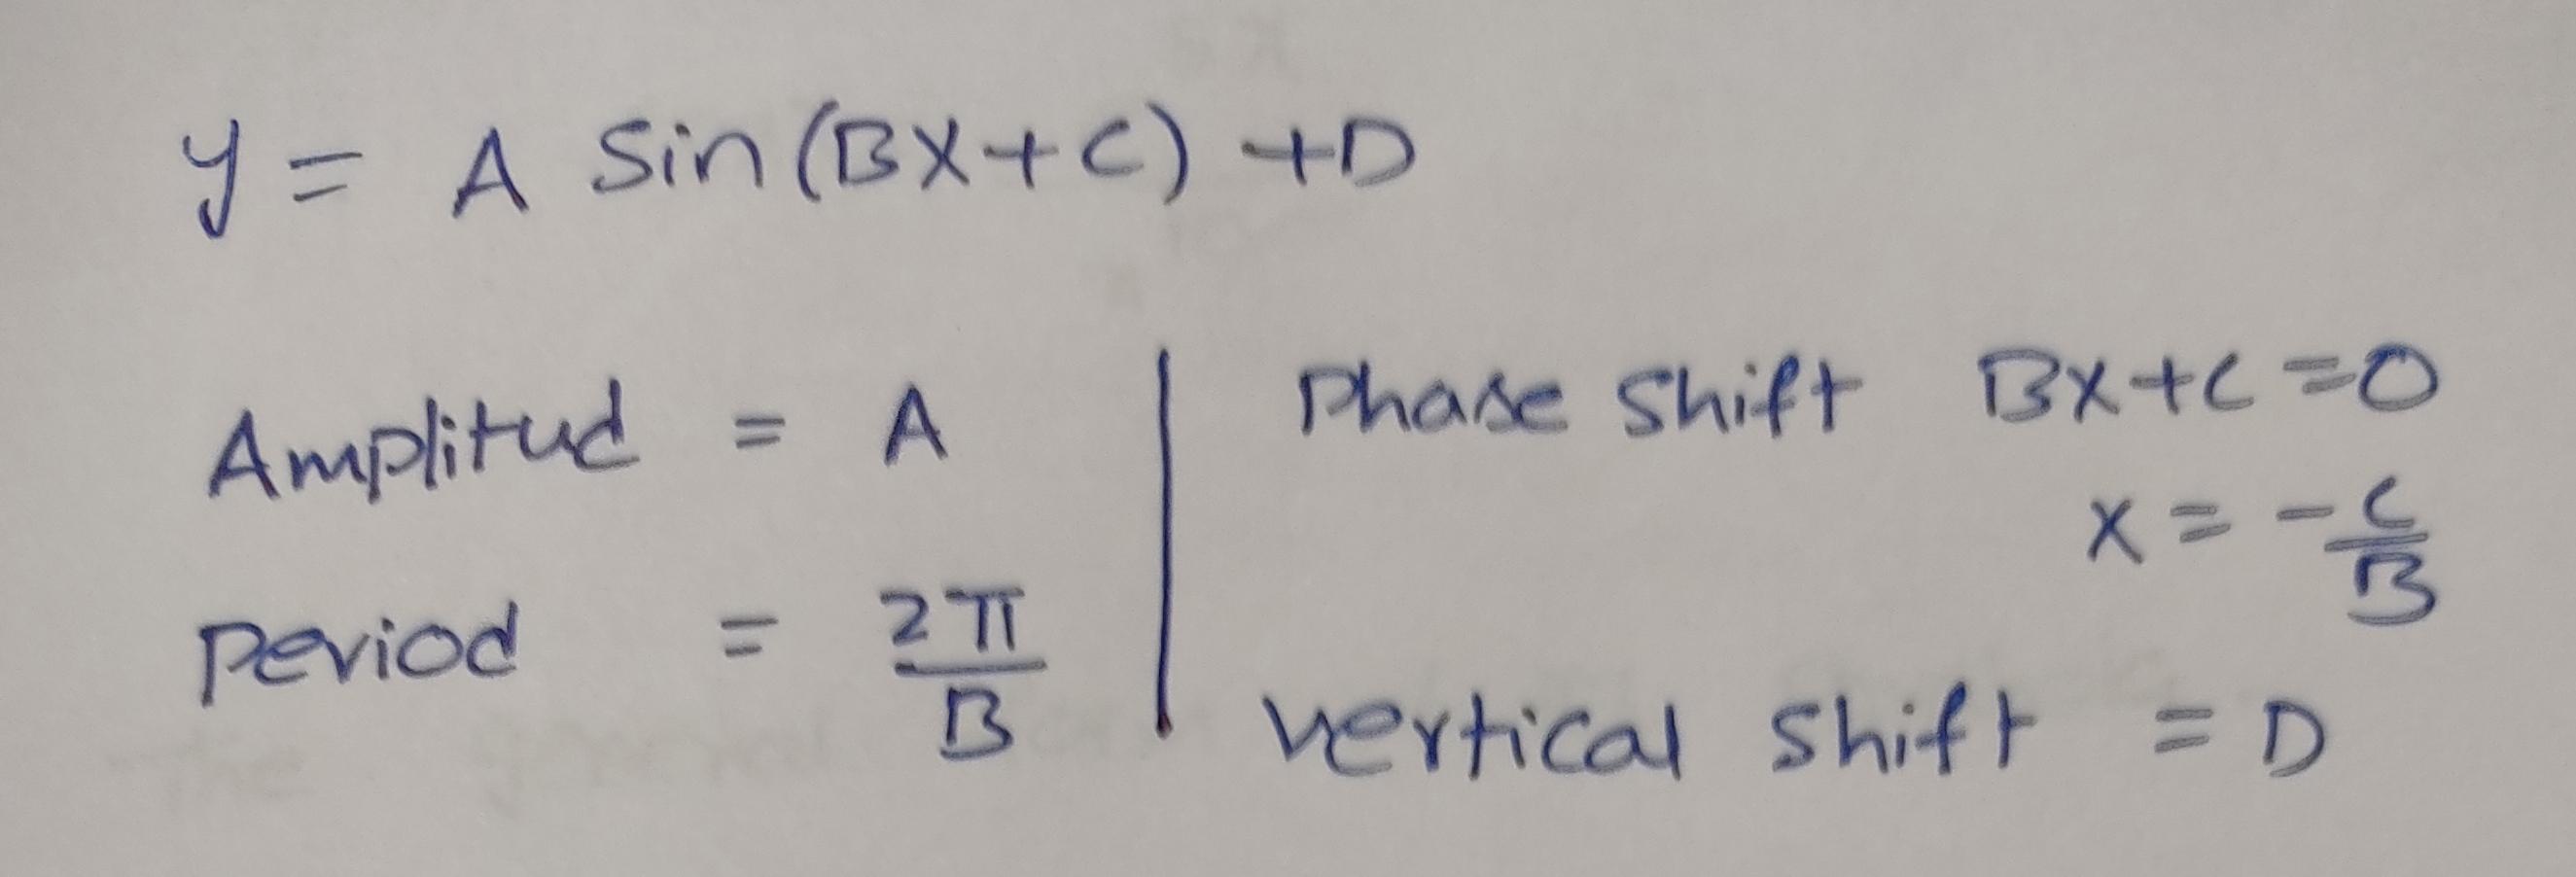 y = A Sin (BX+C) +D
Amplitud = A
Period = 2π/B
Phase Shift BX+C=0
X = -C/B
Vertical Shift = D